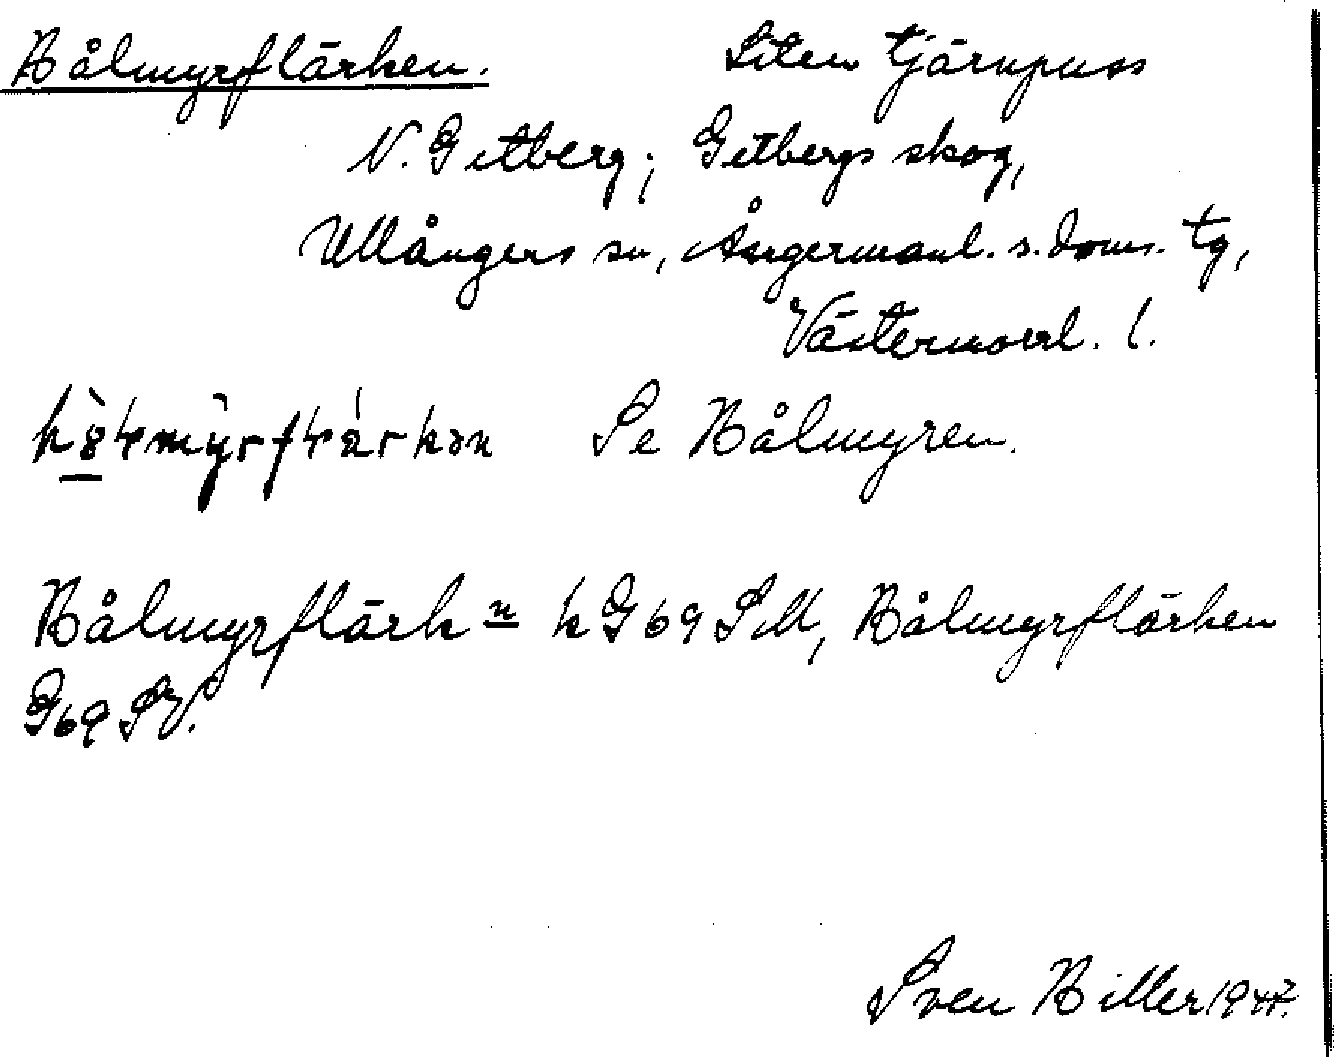 Hålmyrflärken. Liten tjärnpuss
N. Getberg; Getbergs skog,
Ullångers sn, Ångermanl. s. doms. tg,
Västernorrl. l.
Se Hålmyren.
Hålmyrflärk n k G69 SM, Hålmyrflärken
G69 SV.
Sven Hiller 1947.